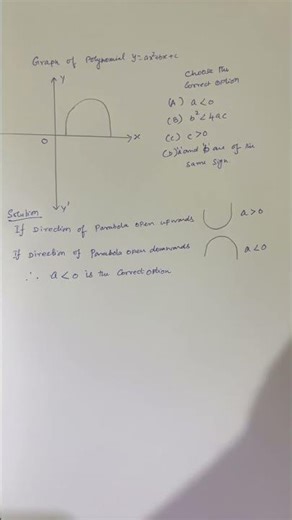 Graph of Polynomial y=ax²+bx+c
Choose the
Correct option
(A) a<0
(B) b²<4ac
(C) c>0
(D) 'a' and 'b' are of the
same sign
Y
O
X
Y'
Solution
If Direction of Parabola open upwards a>0
If Direction of Parabola open downwards a<0
∴ a<0 is the Correct option